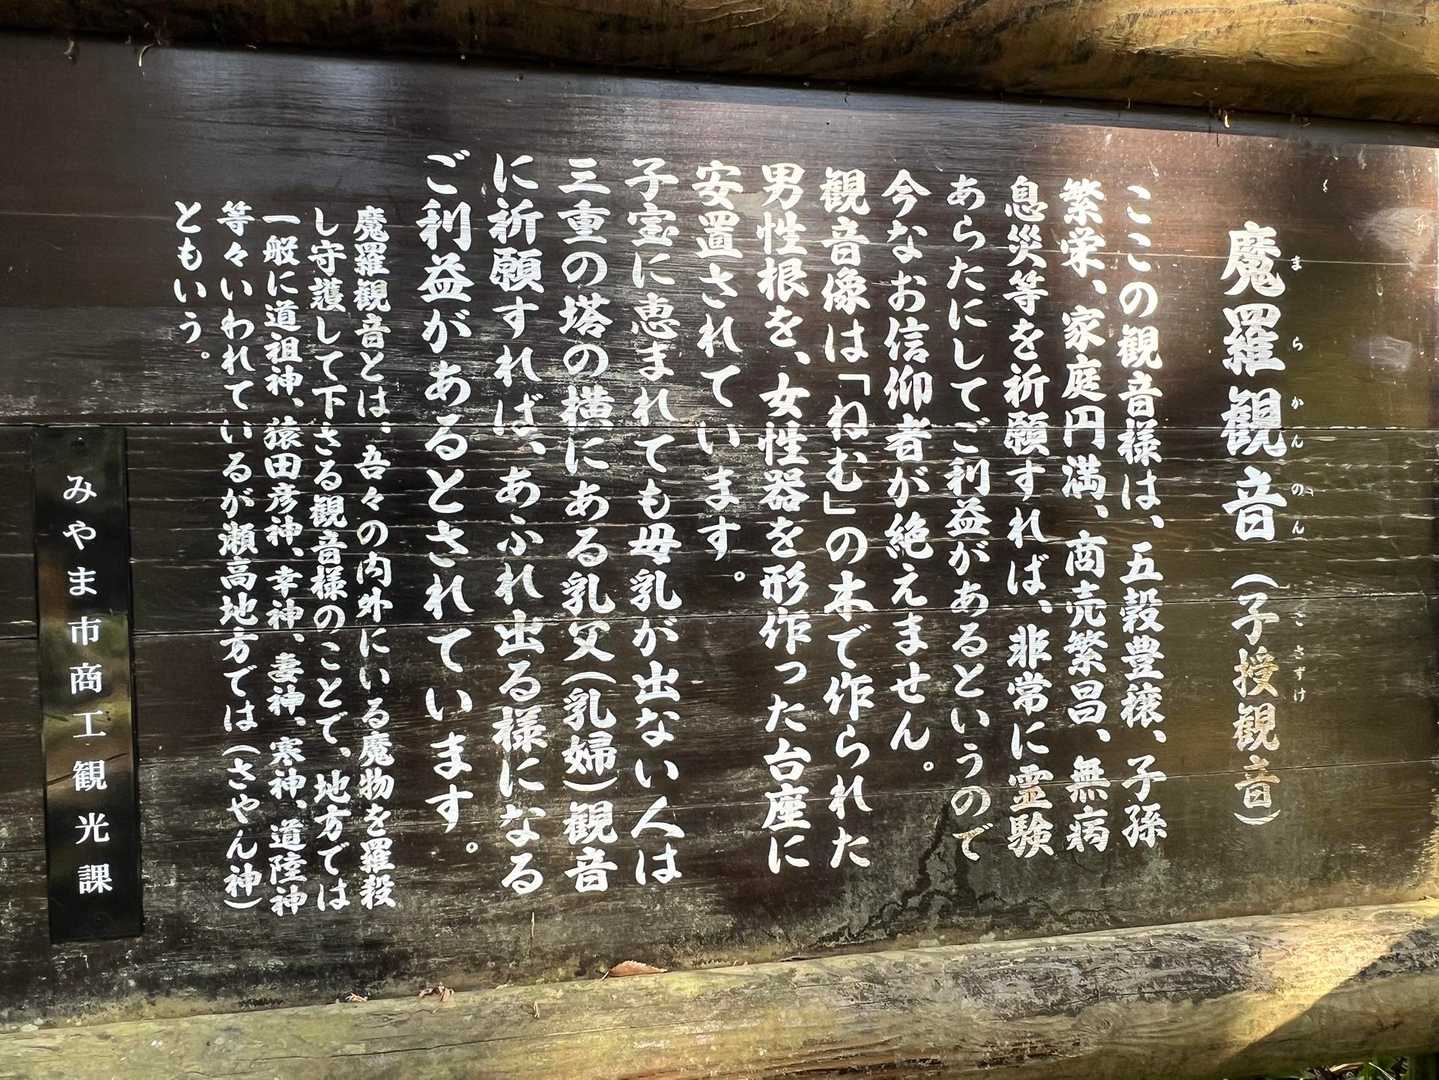 魔羅観音(子授観音)
まらかんのん
こさずけ
ここの観音様は、五穀豊穣、子孫
繁栄、家庭円満、商売繁昌、無病
息災等を祈願すれば、非常に霊験
あらたにしてご利益があるというので
今なお信仰者が絶えません。
観音像は「ねむ」の木で作られた
男性根を、女性器を形作った台座に
安置されています。
子宝に恵まれても母乳が出ない人は
三重の塔の横にある乳父(乳婦)観音
に祈願すれば、あふれ出る様になる
ご利益があるとされています。
魔羅観音とは、吾々の内外にいる魔物を羅殺
し守護して下さる観音様のことで、地方では
一般に道祖神、猿田彦神、幸神、妻神、寒神、道陸神
等々いわれているが瀬高地方では(さやん神)
ともいう。
みやま市商工観光課